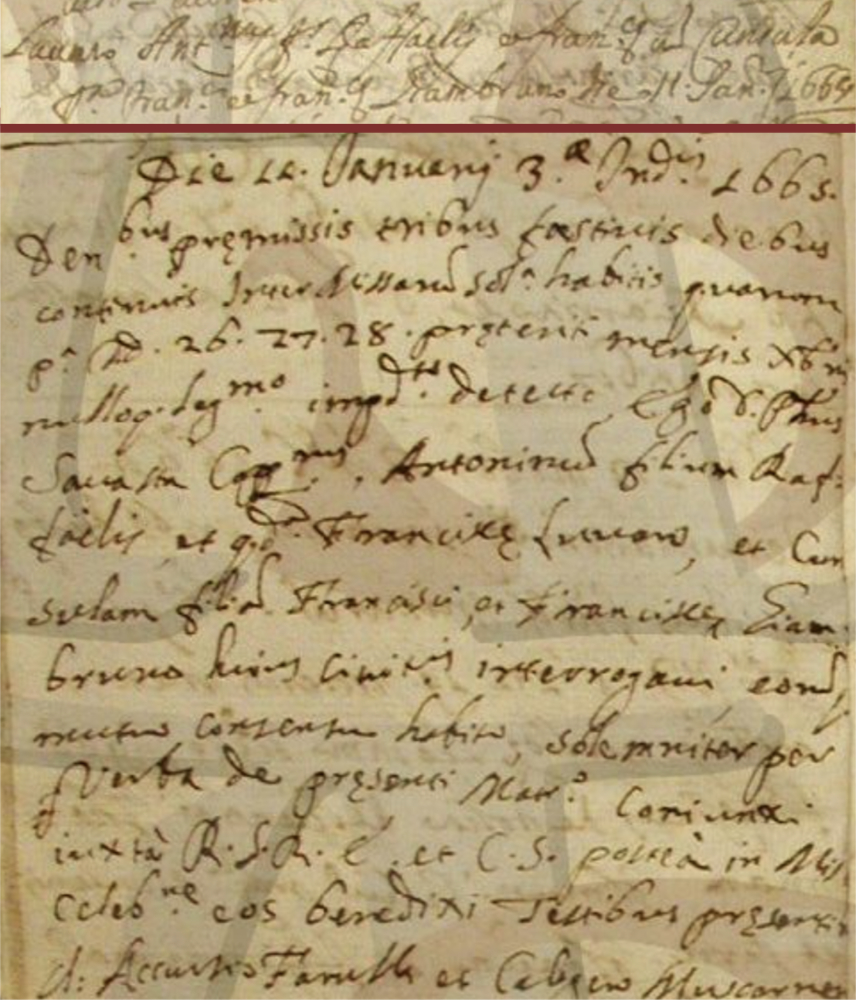 Lauaro Ant.nus f.s Raffaelis et Fran.cę cũ Cunsula
Fran.ci et Fran.cę Ziambruno die 11 Jan.ij 1665
Die 12. Januarij 3.æ Ind.is 1665.
Den.bus pręmissis tribus festiuis diebus
continuis Inter Missarũ sol.a habitis quarum
p.a 26. 27. 28. pręteriti mensis Xbris
nulloq. leg.mo imp.to detecto, Ego D. Phus
Capp.nus, Antoninũ filium Raf-
faelis, et q.d Franciscę Luuaro, et Cun
sulam filiã Francisci, et Franciscę Ziam-
bruno huius Ciuitis interrogaui, eorũq
mutuo consensu habito, solemniter per
Verba de pręsenti Matr.o Coniunxi
iuxtà R.S.R.E. et C.S. posteà in Mis
Celeb.ne eos benedixi Testibus pręsentib
d: Accursio Farulla et Calogero Muscarneri